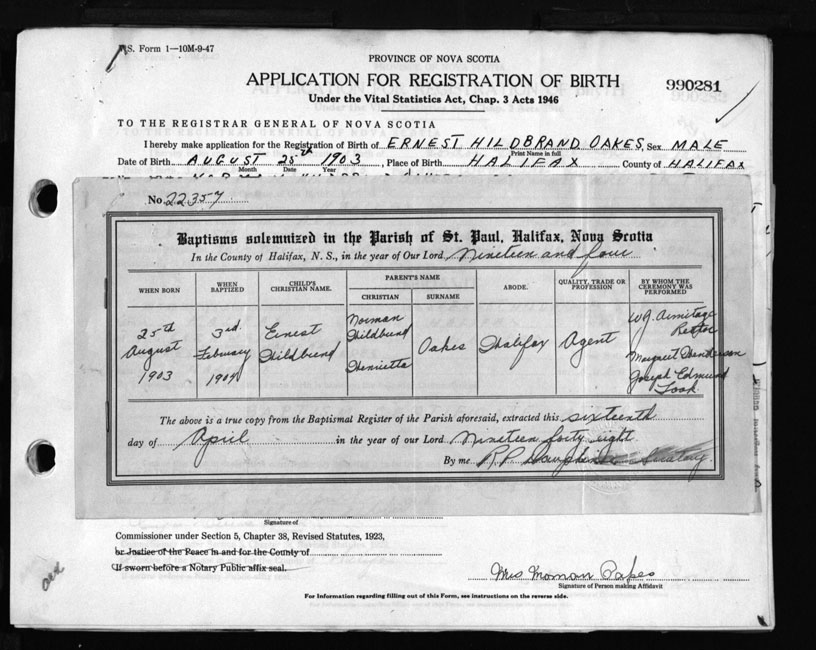 V.S. Form 1—10M-9-47
PROVINCE OF NOVA SCOTIA
APPLICATION FOR REGISTRATION OF BIRTH
990281
Under the Vital Statistics Act, Chap. 3 Acts 1946
TO THE REGISTRAR GENERAL OF NOVA SCOTIA
I hereby make application for the Registration of Birth of ERNEST HILDBRAND OAKES, Sex MALE
Print Name in full
Date of Birth AUGUST 25th 1903, Place of Birth HALIFAX County of HALIFAX
Month Date Year
No. 22357
Baptisms solemnized in the Parish of St. Paul, Halifax, Nova Scotia
In the County of Halifax, N. S., in the year of Our Lord Nineteen and four
WHEN BORN
WHEN BAPTIZED
CHILD'S CHRISTIAN NAME.
PARENT'S NAME
CHRISTIAN
SURNAME
ABODE.
QUALITY, TRADE OR PROFESSION
BY WHOM THE CEREMONY WAS PERFORMED
25th August 1903
3rd February 1904
Ernest Hildbrend
Norman Hildbrend
Henrietta
Oakes
Halifax
Agent
W J. Armitage
Rector
Margaret Henderson
Joseph Edmund
The above is a true copy from the Baptismal Register of the Parish aforesaid, extracted this sixteenth
day of April in the year of our Lord Nineteen forty eight
By me R.P.
Signature of
Commissioner under Section 5, Chapter 38, Revised Statutes, 1923,
or Justice of the Peace in and for the County of
If sworn before a Notary Public affix seal.
Mrs Norman Oakes
Signature of Person making Affidavit
For Information regarding filling out of this Form, see instructions on the reverse side.